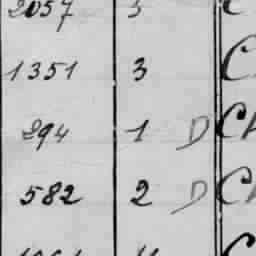 2057 3 C
1351 3 C
294 1 D CH
582 2 D CH